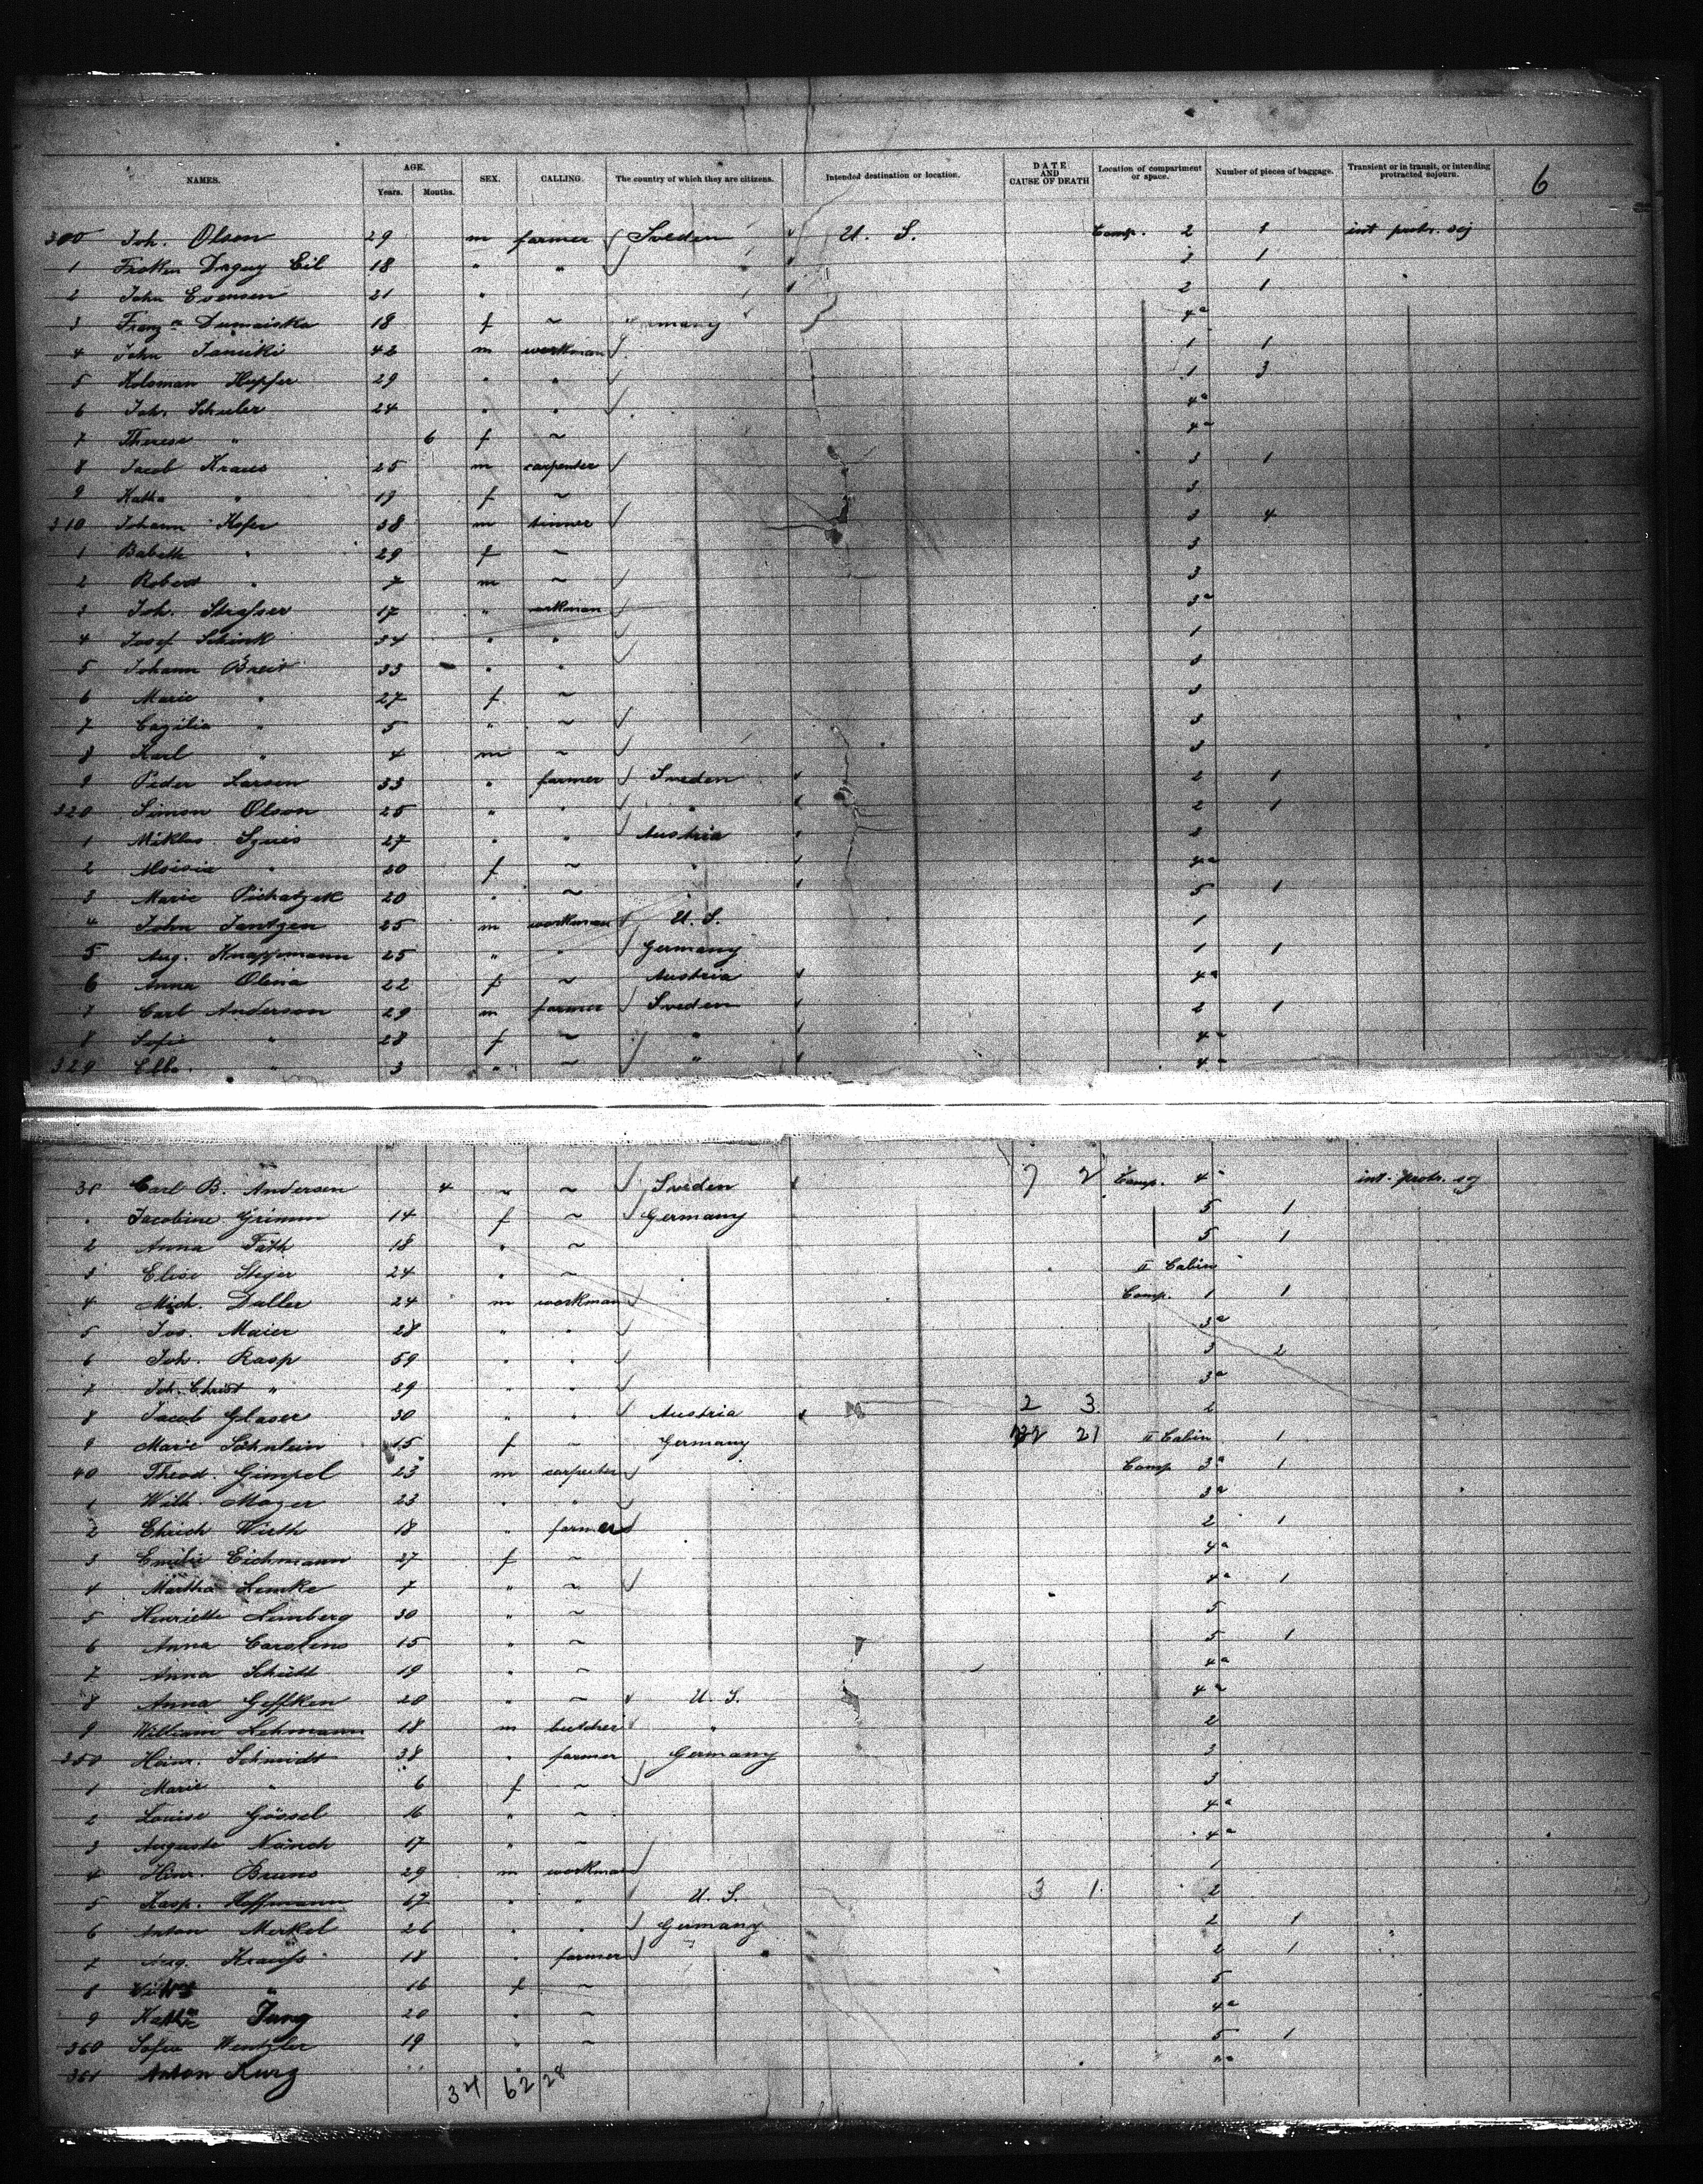 NAMES. AGE. Years. Months. SEX. CALLING. The country of which they are citizens. Intended destination or location. DATE AND CAUSE OF DEATH Location of compartment or space. Number of pieces of baggage. Transient or in transit, or intending protracted sojourn. 6
300 Joh. Olson 29 m farmer Sweden U. S. Comp. 2 1 int protr. soj
1 18 " " 1
2 John Evensen 21 " 2 1
3 Franz a 18 f ~ Germany 4a
4 John 42 m workman 1 1
5 Koloman Hupfer 29 " " 1 3
6 Joh. Schuler 24 " " 4a
7 Therese " 6 f ~ 4a
8 Jacob Kraus 25 m carpenter 3 1
9 Katha " 19 f ~ 3
310 Johann Hofer 38 m tinner 3 4
1 Babette " 29 f ~ 3
2 Robert " 7 m ~ 3
3 Joh. Strasser 17 " workman 3a
4 Josef Schink 34 " " 1
5 Johann Breit 33 " " 3
6 Marie " 27 f ~ 3
7 Cazilia " 5 " ~ 3
8 Karl " 4 m ~ 3
9 Peder Larsen 33 " farmer Sweden 2 1
320 Simon Olson 25 " " " 2 1
1 Miklos 27 " " Austria 3
2 " 20 f ~ " 4a
3 Marie 20 " ~ 5 1
4 John Jantzen 25 m workman U. S. 1
5 Aug. Knappmann 25 " " Germany 1 1
6 Anna Olena 22 f ~ Austria 4a
7 Carl Anderson 29 m farmer Sweden 2 1
8 Sofie " 28 f ~ " 4a
329 Elba " 3 " ~ " 4a
Carl B. Andersen 4 " ~ Sweden 7 2 Comp. 4a int. protr. soj
" Jacobine Grimm 14 f ~ Germany 5 1
2 Anna Fath 18 " ~ 5 1
3 Elise Steger 24 " ~ II Cabin
4 Mich. Daller 24 m workman Comp. 1 1
5 Jos. Maier 28 " " 3a
6 Joh. Rasp 59 " " 3 2
7 Joh. Christ " 29 " " 3a
8 Jacob Glaser 30 " " Austria 2 3. 2
9 Marie 15 f ~ Germany 21 II Cabin 1
40 Theod. Gimpel 23 m carpenter Comp 3a 1
1 Wilh. Mayer 23 " " 3a
2 Wirth 18 " farmer 2 1
3 Emilie Eichmann 27 f ~ 4a
4 Martha Lemke 7 " ~ 4a 1
5 Henriette Lemberg 30 " ~ 5
6 Anna Carstens 15 " ~ 5 1
7 Anna Schütt 19 " ~ 4a
8 Anna Geffken 20 " ~ U. S. 4a
9 William Lehmann 18 m butcher " 2
350 Heinr. Schmidt 38 " farmer Germany 3
1 Marie " 6 f ~ 3
2 Louise Gössel 16 " ~ 4a
3 Auguste Nünch 17 " ~ 4a
4 Hinr. Bruns 29 m workman 1
5 Kasp. Hoffmann 67 " " U. S. 3 1. 2
6 Anton Merkel 26 " " Germany 2 1
7 Aug. Krauss 18 " farmer 2 1
8 " 16 f ~ 5
9 Kath Jung 20 " ~ 4a
360 Sofie Wentzler 19 " ~ 5 1
361 Anton Kurz "
34 62 28